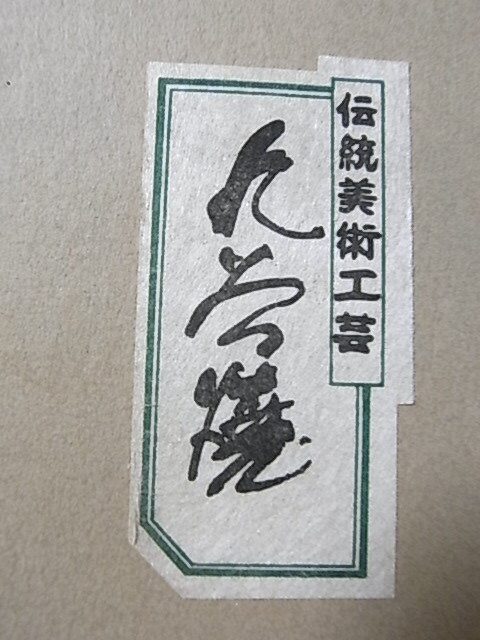 伝統美術工芸
九谷焼